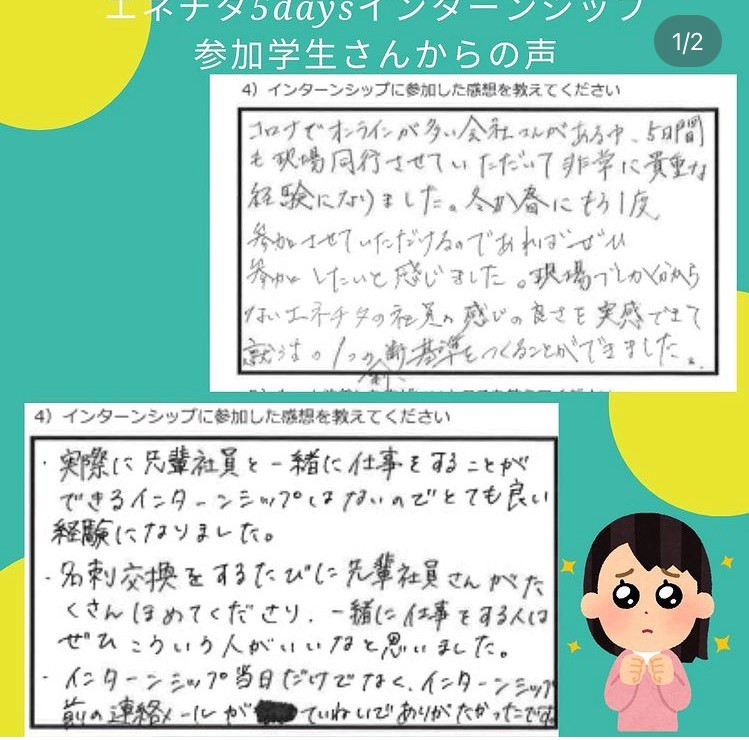 エネチタ5daysインターンシップ
参加学生さんからの声
1/2
4）インターンシップに参加した感想を教えてください
コロナでオンラインが多い会社さんがある中、5日間
も現場同行させていただいて非常に貴重な
経験になりました。冬か春にもう1度
参加させていただけるのであればぜひ
参加したいと感じました。現場でしか分から
ないエネチタの社員の感じの良さを実感できて
就活の1つの判断基準をつくることができました。
4）インターンシップに参加した感想を教えてください
・実際に先輩社員と一緒に仕事をすることが
できるインターンシップはないのでとても良い
経験になりました。
・名刺交換をするたびに先輩社員さんがた
くさんほめてくださり、一緒に仕事をする人は
ぜひこういう人がいいなと思いました。
・インターンシップ当日だけでなく、インターンシップ
前の連絡メールが ていねいでありがたかったです